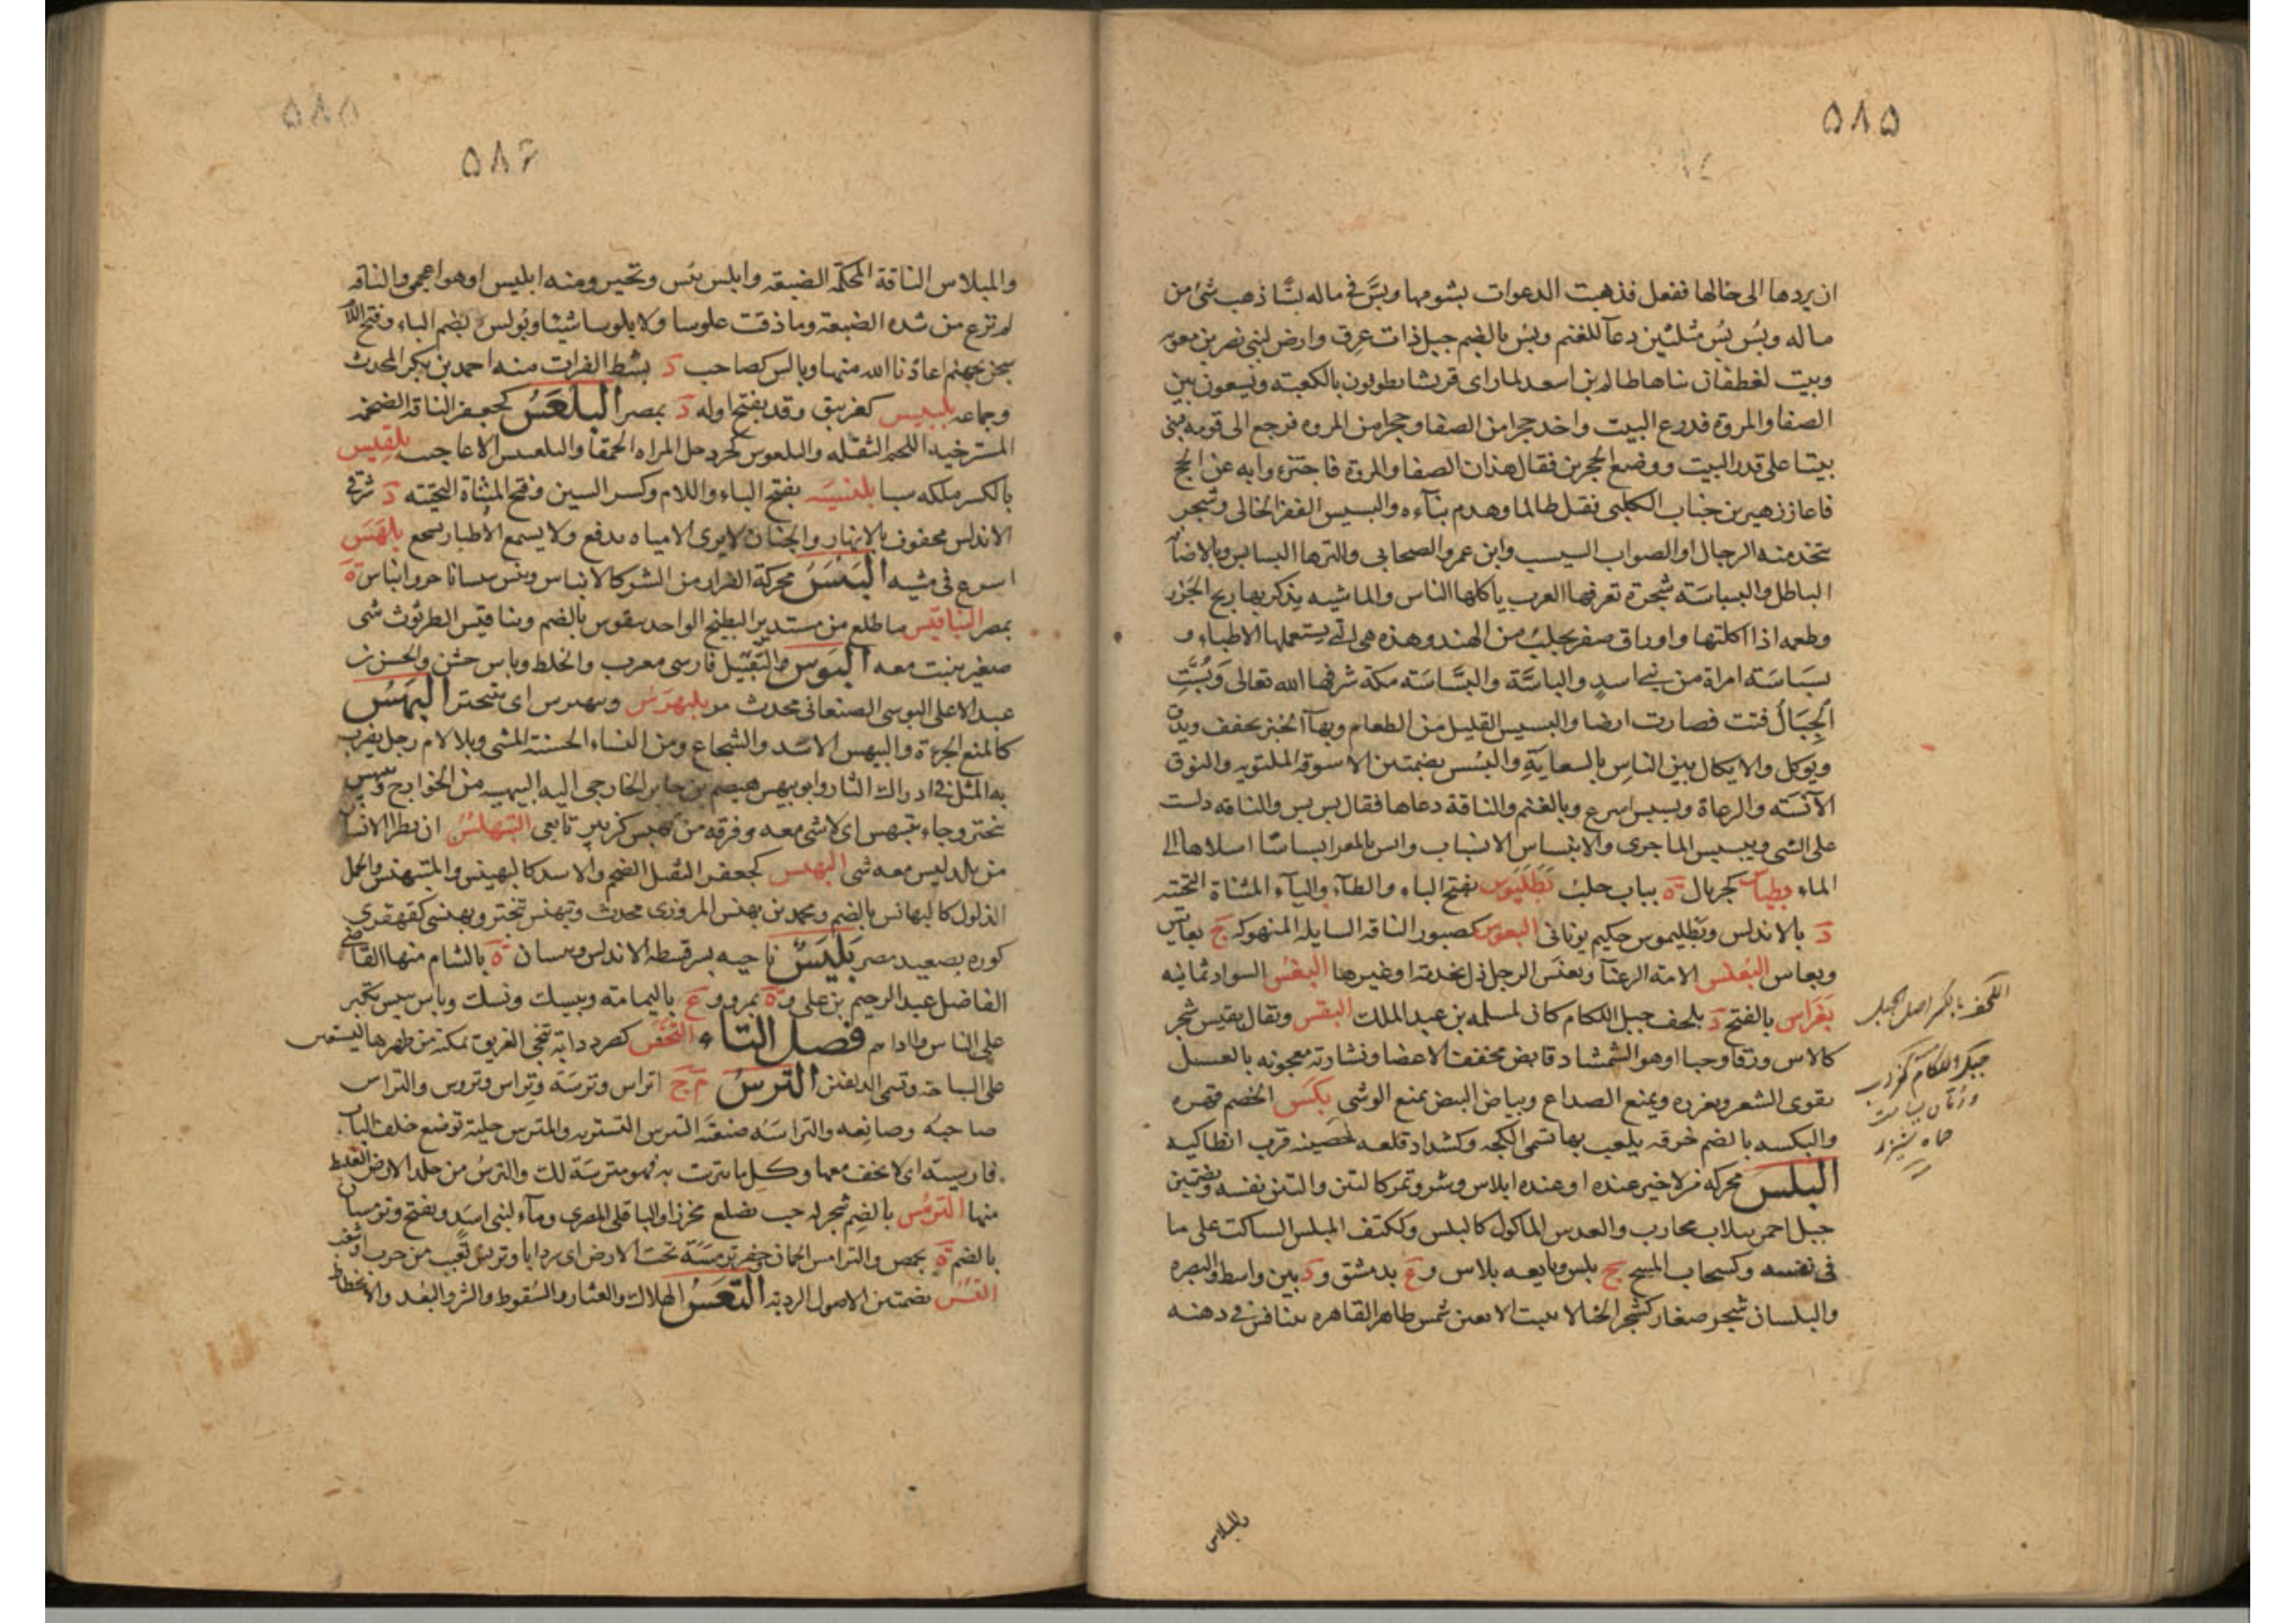 ٥٨٥
ان يردها الى حالها ففعل فذهبت الدعوات بشومها وبس فى ماله بسا ذهب شئ من
ماله وبُس بُس مثلثين دعآ للغنم وبس بالضم جبل ذات عرق وارض لبنى نصر بن معويه
وبيت لغطفان بناها ظالم بن اسعد لما راى قريشا يطوفون بالكعبة ويسعون بين
الصفا والمروة فذرع البيت واخذ حجرا من الصفا وحجرا من المروه فرجع الى قومه فبنى
بيتا على قدر البيت ووضع الحجرين فقال هذان الصفا والمروة فاجتزء وابه عن الحج
فاغار زهير بن جناب الكلبى فقتل ظالما وهدم بنآءه والبسيس القفر الخالى وشجر
تتخذ منه الرحال او الصواب السيسب وابن عمرو الصحابى والترها البسابس وبالاضآ
الباطل والبسباسة شجرة تعرفها العرب ياكلها الناس والماشيه يذكر بها ريح الجزر
وطعمه اذا اكلتها واوراق صفر يجلب من الهند وهذه هى التى يستعملها الاطباء و
بسباسة امراة من بنى اسد والباسّة والبسّاسة مكة شرفها الله تعالى وبُسَّتِ
الجِبَالُ فتت فصارت ارضا والبسيس القليل من الطعام وبهآ الخبز يجفف ويدق
ويوكل والايكال بين الناس بالسعاية والبسس بضمتين الاسوقه الملتوته والنوق
الآنسة والرعاة وبسبس اسرع وبالغنم والناقة دعاها فقال بس بس والناقة دامت
على الشى وتبسبس الما جرى والانبساس الانسياب وابس بالمعز ابساسا اسلاها الى
الماء وبطياس كجريال ة بباب حلب بَطَلْيَوس بفتح الباء والطآء واليآء المثناة التحتية
د بالاندلس وبَطليموس حكيم يونانى البعوس كصبور الناقه السايله المنهوكه ج بعايس
وبعاس البَعْنَس الامة الرعنآ وبعنس الرجل ذل بخدمة او غيرها البغس السواد يمانيه
بَغراس بالفتح د بلحف جبل اللكام كان لمسلمه بن عبد الملك البقس ويقال بقيس شجر
كالاس ورقا وحبا او هو الشمشاد قابض يجفف الاعضا ونشارته معجونه بالعسل
يقوى الشعر ويغزره ويمنع الصداع وبياض البيض يمنع الوشى بكس الخصم قهره
والبكسه بالضم خرقه يلعب بها تسمى الكجه وكشداد قلعه حصينه قرب انطاكيه
البلس محركه من لا خير عنده او عنده ابلاس وشر وثمر كالتين والتين نفسه وبضمتين
جبل احمر ببلاد محارب والعدس الماكول كالبلس وككتف المبلس الساكت على ما
فى نفسه وكسحاب المسح ج بلس وبايعه بلاس وع بدمشق ود بين واسط والبصره
والبلسان شجر صغار كشجر الحنا لا ينبت الا بعين شمس ظاهر القاهره يتنافس فى دهنه
اللحف بالكسر اصل الجبل
جبل اللكام
والمبلاس
٥٨٦
والمبلاس الناقة المحكمة الضبعة وابلس يئس وتحير ومنه ابليس او هو اعجمى والناقه
لم ترع من شده الضبعة وما ذقت علوسا ولا بلوسا شيئا وبولس بضم الباء وفتح اللا
سجن بجهنم اعاذنا الله منها وبالس كصاحب د بشط الفرات منه احمد بن بكر المحدث
وجماعه بلبيس كغرنيق وقد يفتح اوله د بمصر البلعس كجعفر الناقه الضخمه
المسترخية اللحم الثقيله والبلعوس كجردحل المراه الحمقآ والبلعبيس الاعاجيب بلقيس
بالكسر ملكه سبا بلنسية بفتح الباء واللام وكسر السين وفتح المثناة التحتيه د شرقى
الاندلس محفوف بالانهار والجنان لا يرى الا مياه تدفع ولا يسمع الا اطيار تسجع بلهس
اسرع فى مشيه البنس محركة الفرار من الشر كالابناس وبنس تبنيسا تاخر وابناس ة
بمصر البناقيس ما طلع من مستدير البطيخ الواحد بنقوس بالضم وبناقيس الطرثوث شى
صغير ينبت معه البوس التقبيل فارسى معرب والخلط وباس خشن والحسن بن
عبد الاعلى البوسى الصنعانى محدث مر يتبهرس ويتبهنس اى يتبختر البهس
كالمنع الجرءة والبيهس الاسد والشجاع ومن النساء الحسنة المشى وبلا لام رجل يضرب
به المثل فى ادراك الثار وابو بيهس هيصم بن جابر الخارجى اليه البيهسيه من الخوارج وتبيهس
تبختر وجاء يتبيهس اى لا شى معه وفرقه من بهيس كزبير تابعى التبهلس ان يطرا الانسان
من بلد ليس معه شى البهنس كجعفر الثقيل الضخم والاسد كالبهنس والمتبهنس والجمل
الذلول كالبهانس بالضم ومحمد بن بهنس المروزى محدث وتبهنس تبختر وبهنسى كقهقرى
كوره بصعيد مصر بَيْسَ ناحيه بسرقسطه الاندلس وبيسان ة بالشام منها القاضى
الفاضل عبد الرحيم بن على وة بمرو وع باليمامة وبيسك ويسك وباس يبيس تكبر
على الناس واذاهم فصل التاء التخس كصرد دابة تنجى الغريق تمكنه من ظهرها ليستعين
على السباحة وتسمى الدلفين الترس م ج اتراس وترسة وتِراس وتروس والتراس
صاحبه وصانعه والتراسة صنعته الترس التستر به والمترس خشبة توضع خلف الباب
فارسية اى لا تخف معها وكل ما تترست به فهو مترسة لك والترس من جلد الارض الغليظ
منها الترمس بالضم شجر له حب مضلع محزز او الباقلى المصرى ومآء لبنى اسد ويفتح وترمسان
بالضم ة بحمص والترامس الجمان وحفر ترمسة تحت الارض اى سردابا وترمس تغيب من حرب او شغب
التسس بضمتين الاصول الرديه التعس الهلاك والعثار والسقوط والشر والبعد والانحطاط